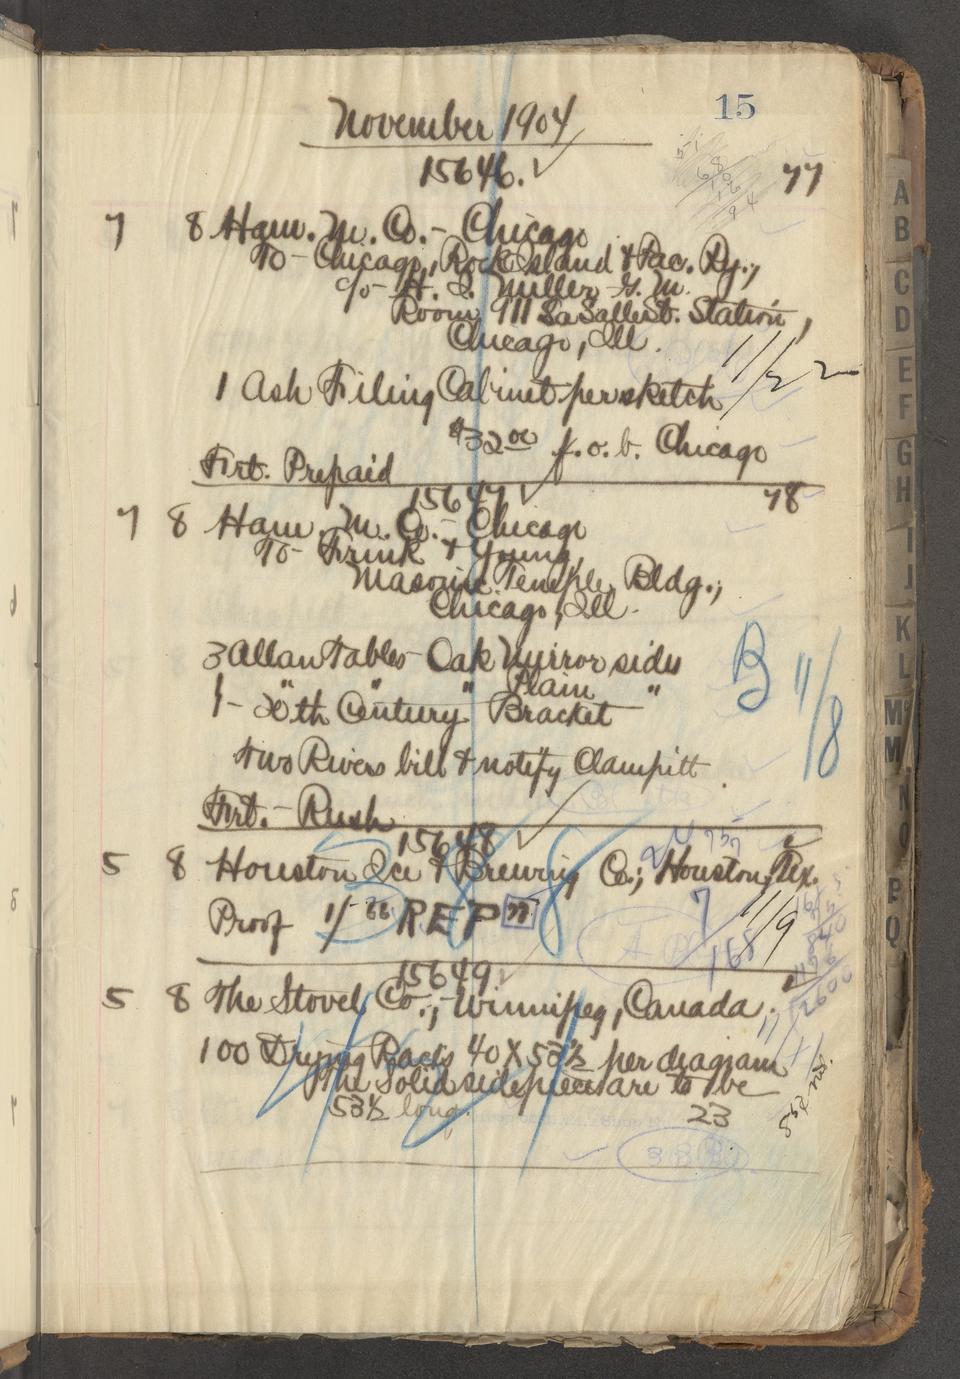 15
November 1904
15646. ✓
77
7 8 Ham. M. Co. - Chicago
To - Chicago, Rock Island & Pac. Ry.,
c/o - H. I. Miller - G. M.
Room 911 LaSalle St. Station,
Chicago, Ill.
11/22
1 Ash Filing Cabinet per sketch
$32.00 f.o.b. Chicago
Frt. Prepaid
15647 ✓
78
7 8 Ham. M. Co. - Chicago
To - Frink & Young,
Masonic Temple Bldg.,
Chicago, Ill.
3 Allan Tables - Oak Mirror sides
1 - " " " Plain "
1 - 20th Century Bracket
B 11/8
Two Rivers bill & notify Clampitt
Frt. - Rush
15648 ✓
5 8 Houston Ice & Brewing Co., Houston, Tex.
Proof 1/ "REP"
7
168
11/9
15649 ✓
5 8 The Stovel Co., - Winnipeg, Canada.
100 Drying Racks 40 X 53½ per diagram
The Solid side pieces are to be
53½ long.
23
3 B